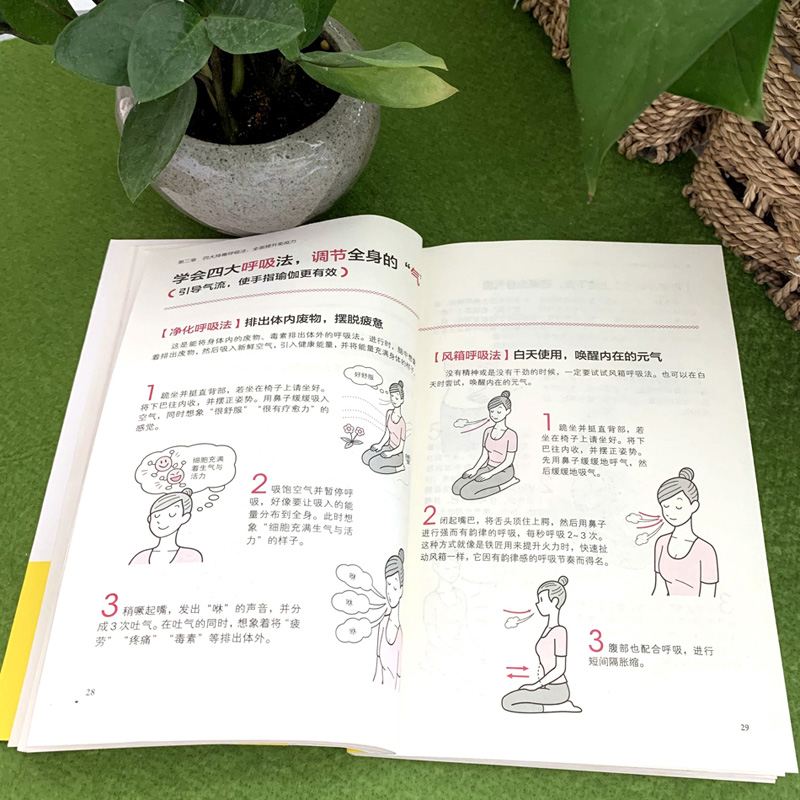 第二章 四大排毒呼吸法，全面提升免疫力
学会四大呼吸法，调节全身的“气
（引导气流，使手指瑜伽更有效）
【净化呼吸法】排出体内废物，摆脱疲惫
这是能将身体内的废物、毒素排出体外的呼吸法。进行时，脑中想
着排出废物，然后吸入新鲜空气，引入健康能量，并将能量充满身体的
1 跪坐并挺直背部，若坐在椅子上请坐好。
将下巴往内收，并摆正姿势。用鼻子缓缓吸入
空气，同时想象“很舒服”“很有疗愈力”的
感觉。
好舒服
细胞充满
着生气与
活力
2 吸饱空气并暂停呼
吸，好像要让吸入的能
量分布到全身。此时想
象“细胞充满生气与活
力”的样子。
3 稍噘起嘴，发出“咻”的声音，并分
成3次吐气。在吐气的同时，想象着将“疲
劳”“疼痛”“毒素”等排出体外。
咻
咻
咻
28
【风箱呼吸法】白天使用，唤醒内在的元气
没有精神或是没有干劲的时候，一定要试试风箱呼吸法。也可以在白
天时尝试，唤醒内在的元气。
1 跪坐并挺直背部，若
坐在椅子上请坐好。将下
巴往内收，并摆正姿势。
先用鼻子缓缓地呼气，然
后缓缓地吸气。
2 闭起嘴巴，将舌头顶住上腭，然后用鼻子
进行强而有韵律的呼吸，每秒呼吸2~3次。
这种方式就像是铁匠用来提升火力时，快速扯
动风箱一样，它因有韵律感的呼吸节奏而得名。
3 腹部也配合呼吸，进行
短间隔胀缩。
29